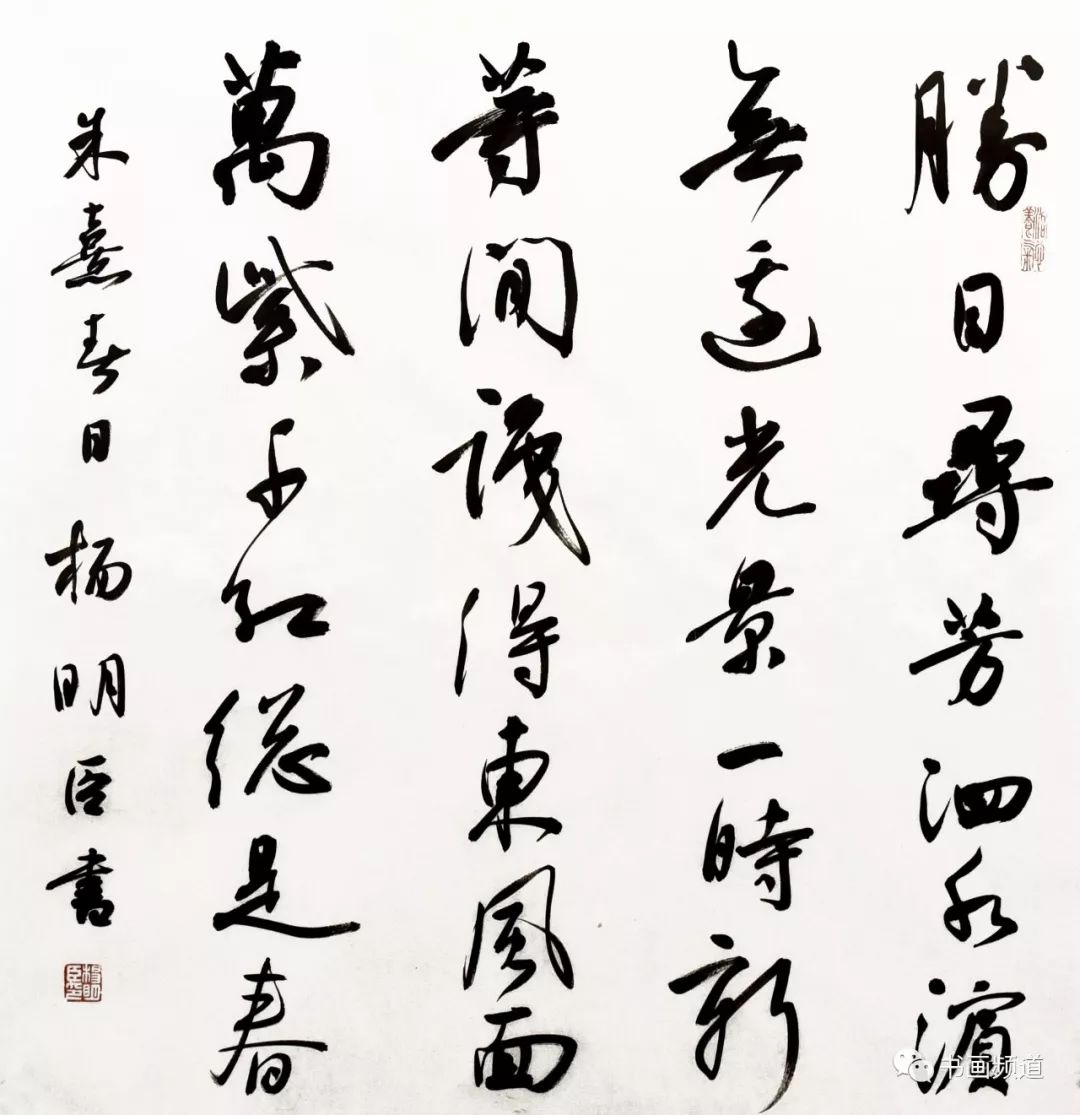 勝日尋芳泗水濱
無邊光景一時新
等閒識得東風面
萬紫千紅總是春
朱熹春日 楊明臣書
书画频道